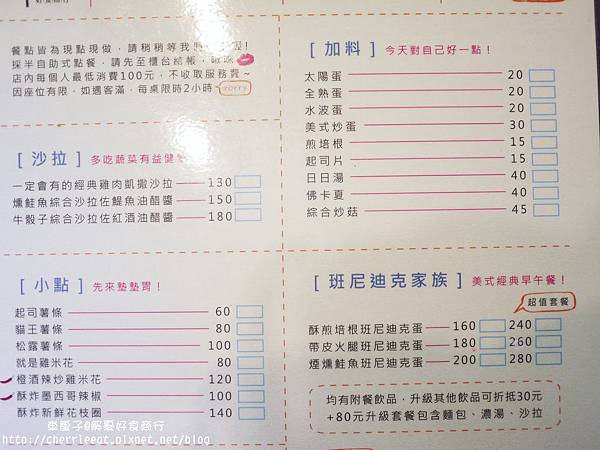 餐點皆為現點現做，請稍稍等我
採半自助式點餐，請先至櫃台結帳，啾咪
店內每個人最低消費100元，不收取服務費~
因座位有限，如遇客滿，每桌限時2小時~ sorry
[ 沙拉 ] 多吃蔬菜有益健
一定會有的經典雞肉凱撒沙拉 130
燻鮭魚綜合沙拉佐鯷魚油醋醬 150
牛骰子綜合沙拉佐紅酒油醋醬 180
[ 小點 ] 先來墊墊胃！
起司薯條 60
貓王薯條 80
松露薯條 100
就是雞米花 80
橙酒辣炒雞米花 120
酥炸墨西哥辣椒 100
酥炸新鮮花枝圈 140
[ 加料 ] 今天對自己好一點！
太陽蛋 20
全熟蛋 20
水波蛋 20
美式炒蛋 30
煎培根 15
起司片 15
日日湯 40
佛卡夏 40
綜合炒菇 45
[ 班尼迪克家族 ] 美式經典早午餐！
超值套餐
酥煎培根班尼迪克蛋 160 240
帶皮火腿班尼迪克蛋 180 260
煙燻鮭魚班尼迪克蛋 200 280
均有附餐飲品，升級其他飲品可折抵30元
+80元升級套餐包含麵包、濃湯、沙拉
車厘子@解憂好食商行
http://cherrleeat.pixnet.net/blog